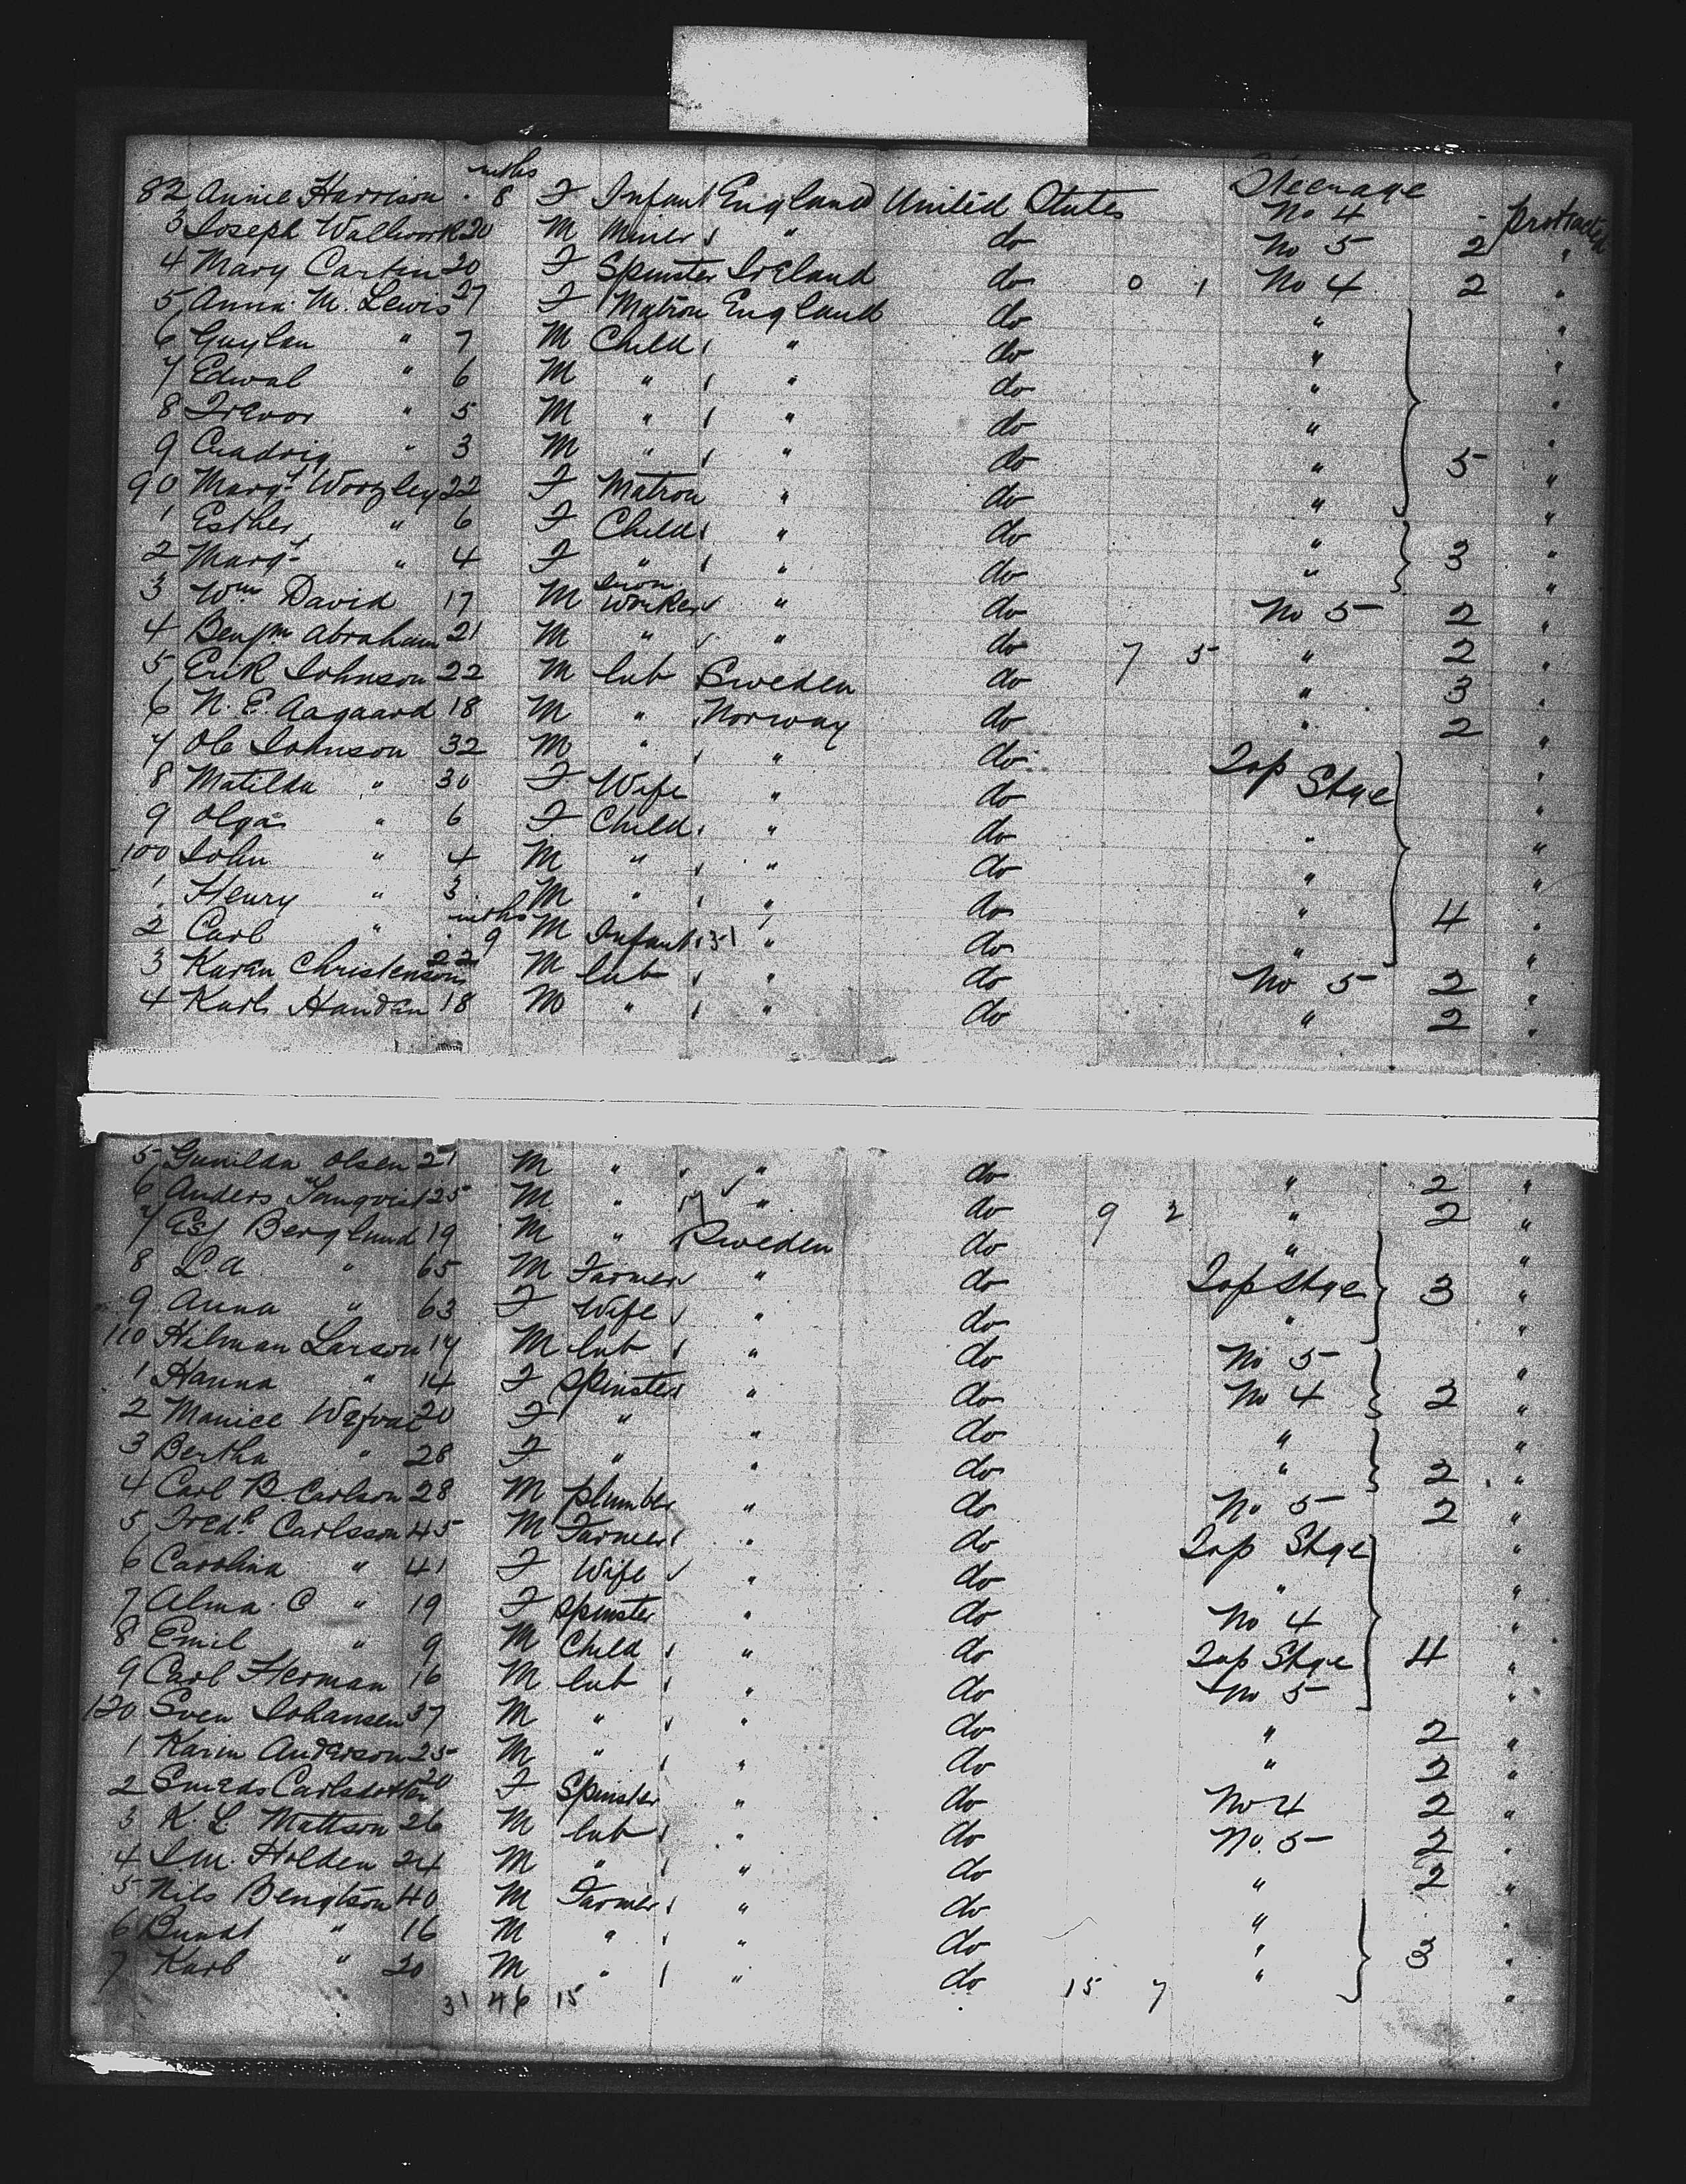 82 Annie Harrison mths 8 F Infant England United States Steerage No 4 - protracted
3 Joseph Wallwork 20 M Miner " do No 5 2 "
4 Mary Cartin 20 F Spinster Ireland do 0 1 No 4 2 "
5 Anna M. Lewis 27 F Matron England do " "
6 Guylan " 7 M Child " do " "
7 Edwal " 6 M " " do " "
8 Trevor " 5 M " " do " "
9 " 3 M " " do " 5 "
90 Margt Woozley 22 F Matron " do " "
1 Esther " 6 F Child " do " "
2 Margt " 4 F " " do " 3 "
3 Wm David 17 M Iron Worker " do No 5 2 "
4 Benjm Abraham 21 M " " do 7 5 " 2 "
5 Erik Johnson 22 M Lab Sweden do " 3 "
6 N. E. Aagaard 18 M " Norway do " 2 "
7 Ole Johnson 32 M " " do Top Stge "
8 Matilda " 30 F Wife " do "
9 Olga " 6 F Child " do " "
100 John " 4 M " " do " "
1 Henry " 3 M " " do " 4 "
2 Carl " mths 9 M Infant 31 " do " "
3 Karin Christenson 22 M Lab " do No 5 2 "
4 Karl 18 M " " do " 2 "
5 Gunilda Olsen 21 M " " do " 2 "
6 Anders 25 M " 17 " do 9 2 " 2 "
7 Berglund 19 M " Sweden do " "
8 L. A. " 65 M Farmer " do Top Stge 3 "
9 Anna " 63 F Wife " do " "
110 Hilman Larson 17 M Lab " do No 5 "
1 Hanna " 14 F Spinster " do No 4 2 "
2 20 F " " do " "
3 Bertha " 28 F " " do " 2 "
4 Carl B. Carlson 28 M Plumber " do No 5 2 "
5 Fredk Carlsson 45 M Farmer " do Top Stge "
6 Carolina " 41 F Wife " do " "
7 Alma C " 19 F Spinster " do No 4 "
8 Emil " 9 M Child " do Top Stge 4 "
9 Carl Herman 16 M Lab " do No 5 "
120 Sven Johansen 37 M " " do " 2 "
1 Karin Anderson 25 M " " do " 2 "
2 Carlsdotter 20 F Spinster " do No 4 2 "
3 K. L. Mattson 26 M Lab " do No. 5 2 "
4 J. M. Holden 24 M " " do " 2 "
5 Nils Bengtson 40 M Farmer " do " "
6 " 16 M " " do " 3 "
7 Karl " 20 M " " do 15 7 " "
31 46 15